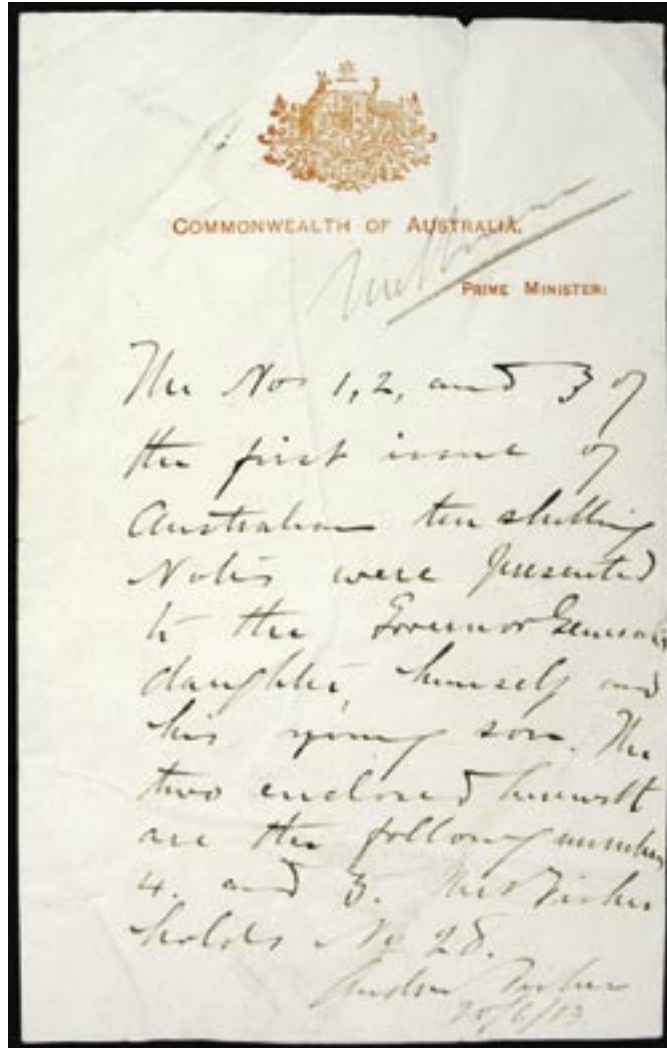 COMMONWEALTH OF AUSTRALIA.
Melbourne
PRIME MINISTER.
The Nos 1, 2, and 3 of
the first issue of
Australian ten shilling
Notes were presented
to the Governor General's
daughter, himself and
his young son. The
two enclosed herewith
are the following numbers
4. and 5. Mrs Fisher
holds No 28.
Andrew Fisher
20/6/13